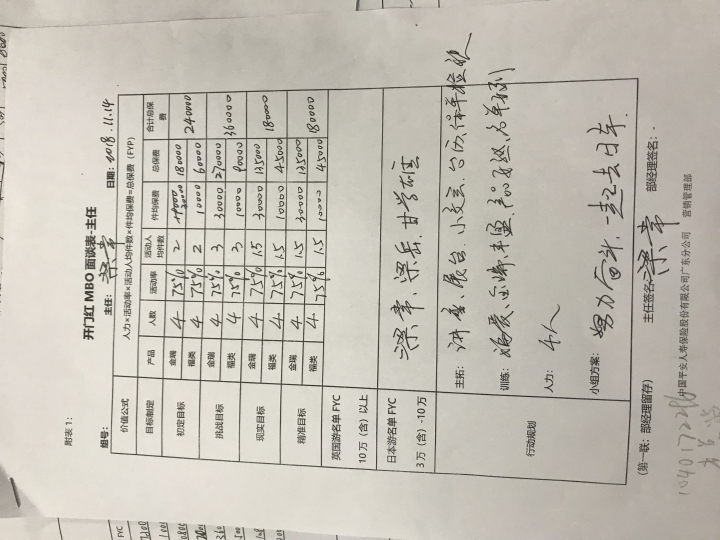 附表 1：
开门红 MBO 面谈表-主任
组号： 主任： 梁常 日期：2018.11.14
价值公式 人力×活动率×活动人均件数×件均保费=总保费（FYP）
目标制定 产品 人数 活动率 活动人均件数 件均保费 总保费 合计总保费
初定目标 金瑞 4 75% 2 30000 180000 240000
福类 4 75% 2 10000 60000
挑战目标 金瑞 4 75% 3 30000 270000 360000
福类 4 75% 3 10000 90000
现实目标 金瑞 4 75% 1.5 30000 135000 180000
福类 4 75% 1.5 10000 45000
精准目标 金瑞 4 75% 1.5 30000 135000 180000
福类 4 75% 1.5 10000 45000
英国游名单 FYC
10 万（含）以上
日本游名单 FYC
3 万（含）-10 万
梁常、梁岳、甘学雄
行动规划
主拓： 讲座、展台、小交会、台历、保单检视
训练：
人力： 4人
小组方案： 努力奋斗，一起去日本
（第一联：部经理留存） 主任签名：梁常 部经理签名：-
中国平安人寿保险股份有限公司广东分公司 营销管理部
FYC